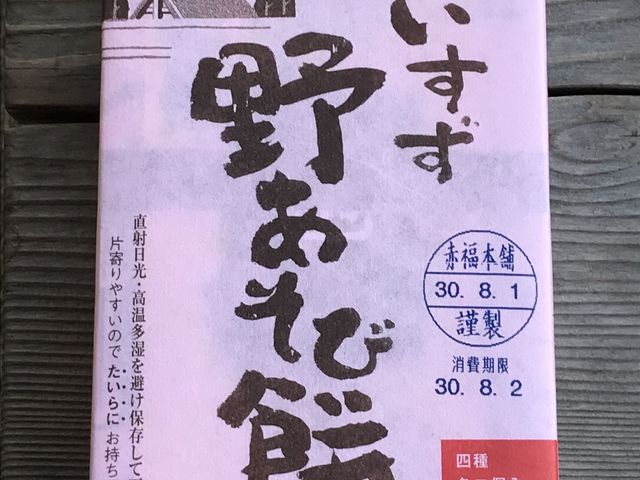 いすゞ
野あそび餅
赤福本舗
30. 8. 1
謹製
消費期限
30. 8. 2
四種
直射日光・高温多湿を避け保存して
片寄りやすいので たいらに お持ち